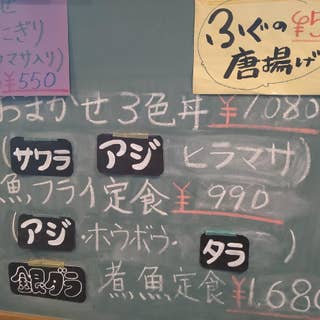 せ
にぎり
マサ入り)
¥550
ふぐの
唐揚げ
¥5
おまかせ3色丼 ¥1080
(サワラ アジ ヒラマサ)
魚フライ定食 ¥990
(アジ・ホウボウ・タラ)
銀ダラ 煮魚定食 ¥1,680